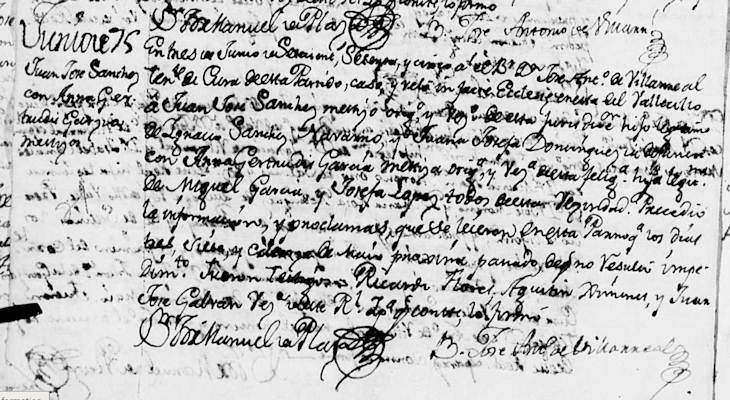 Dr. Joseph Manuel de la Plaza
Br. Jose Antonio de Villarreal
Junio 3, 75
Juan Jose Sanchez
con Anna Ger
trudis Garzia
mestizos
En tres de Junio de setecientos, setenta, y cinco a el Br. Dn. Jose Anto. de Villarreal
tente. de Cura de este Partido, caso, y velo in facie Ecclesie en esta del Vallecillo
a Juan Jose Sanchez mestizo orig.o y vez.o de esta jurisdicon. hijo legitimo
de Ignacio Sanchez Navarro, y Juana Josefa Dominguez
con Anna Gertrudis Garcia mestiza orig.a y vez.a de esta felig.a hija legit.ma
de Miguel Garcia, y Josefa Lopez todos de esta vezindad. Precedio
la informacion, y proclamas, que se leieron en esta Parroq.a los dias
siete, y catorze de Maio proximo pasado, de q no resulto impe
dim.to fueron testigos Ricardo Flores Agustin Ximenes, y Juan
Jose Galvan vez.s de este Rl. y pa. q conste, lo firmo.
Dr. Joseph Manuel de la Plaza
Br. Jose Anto. de Villarreal